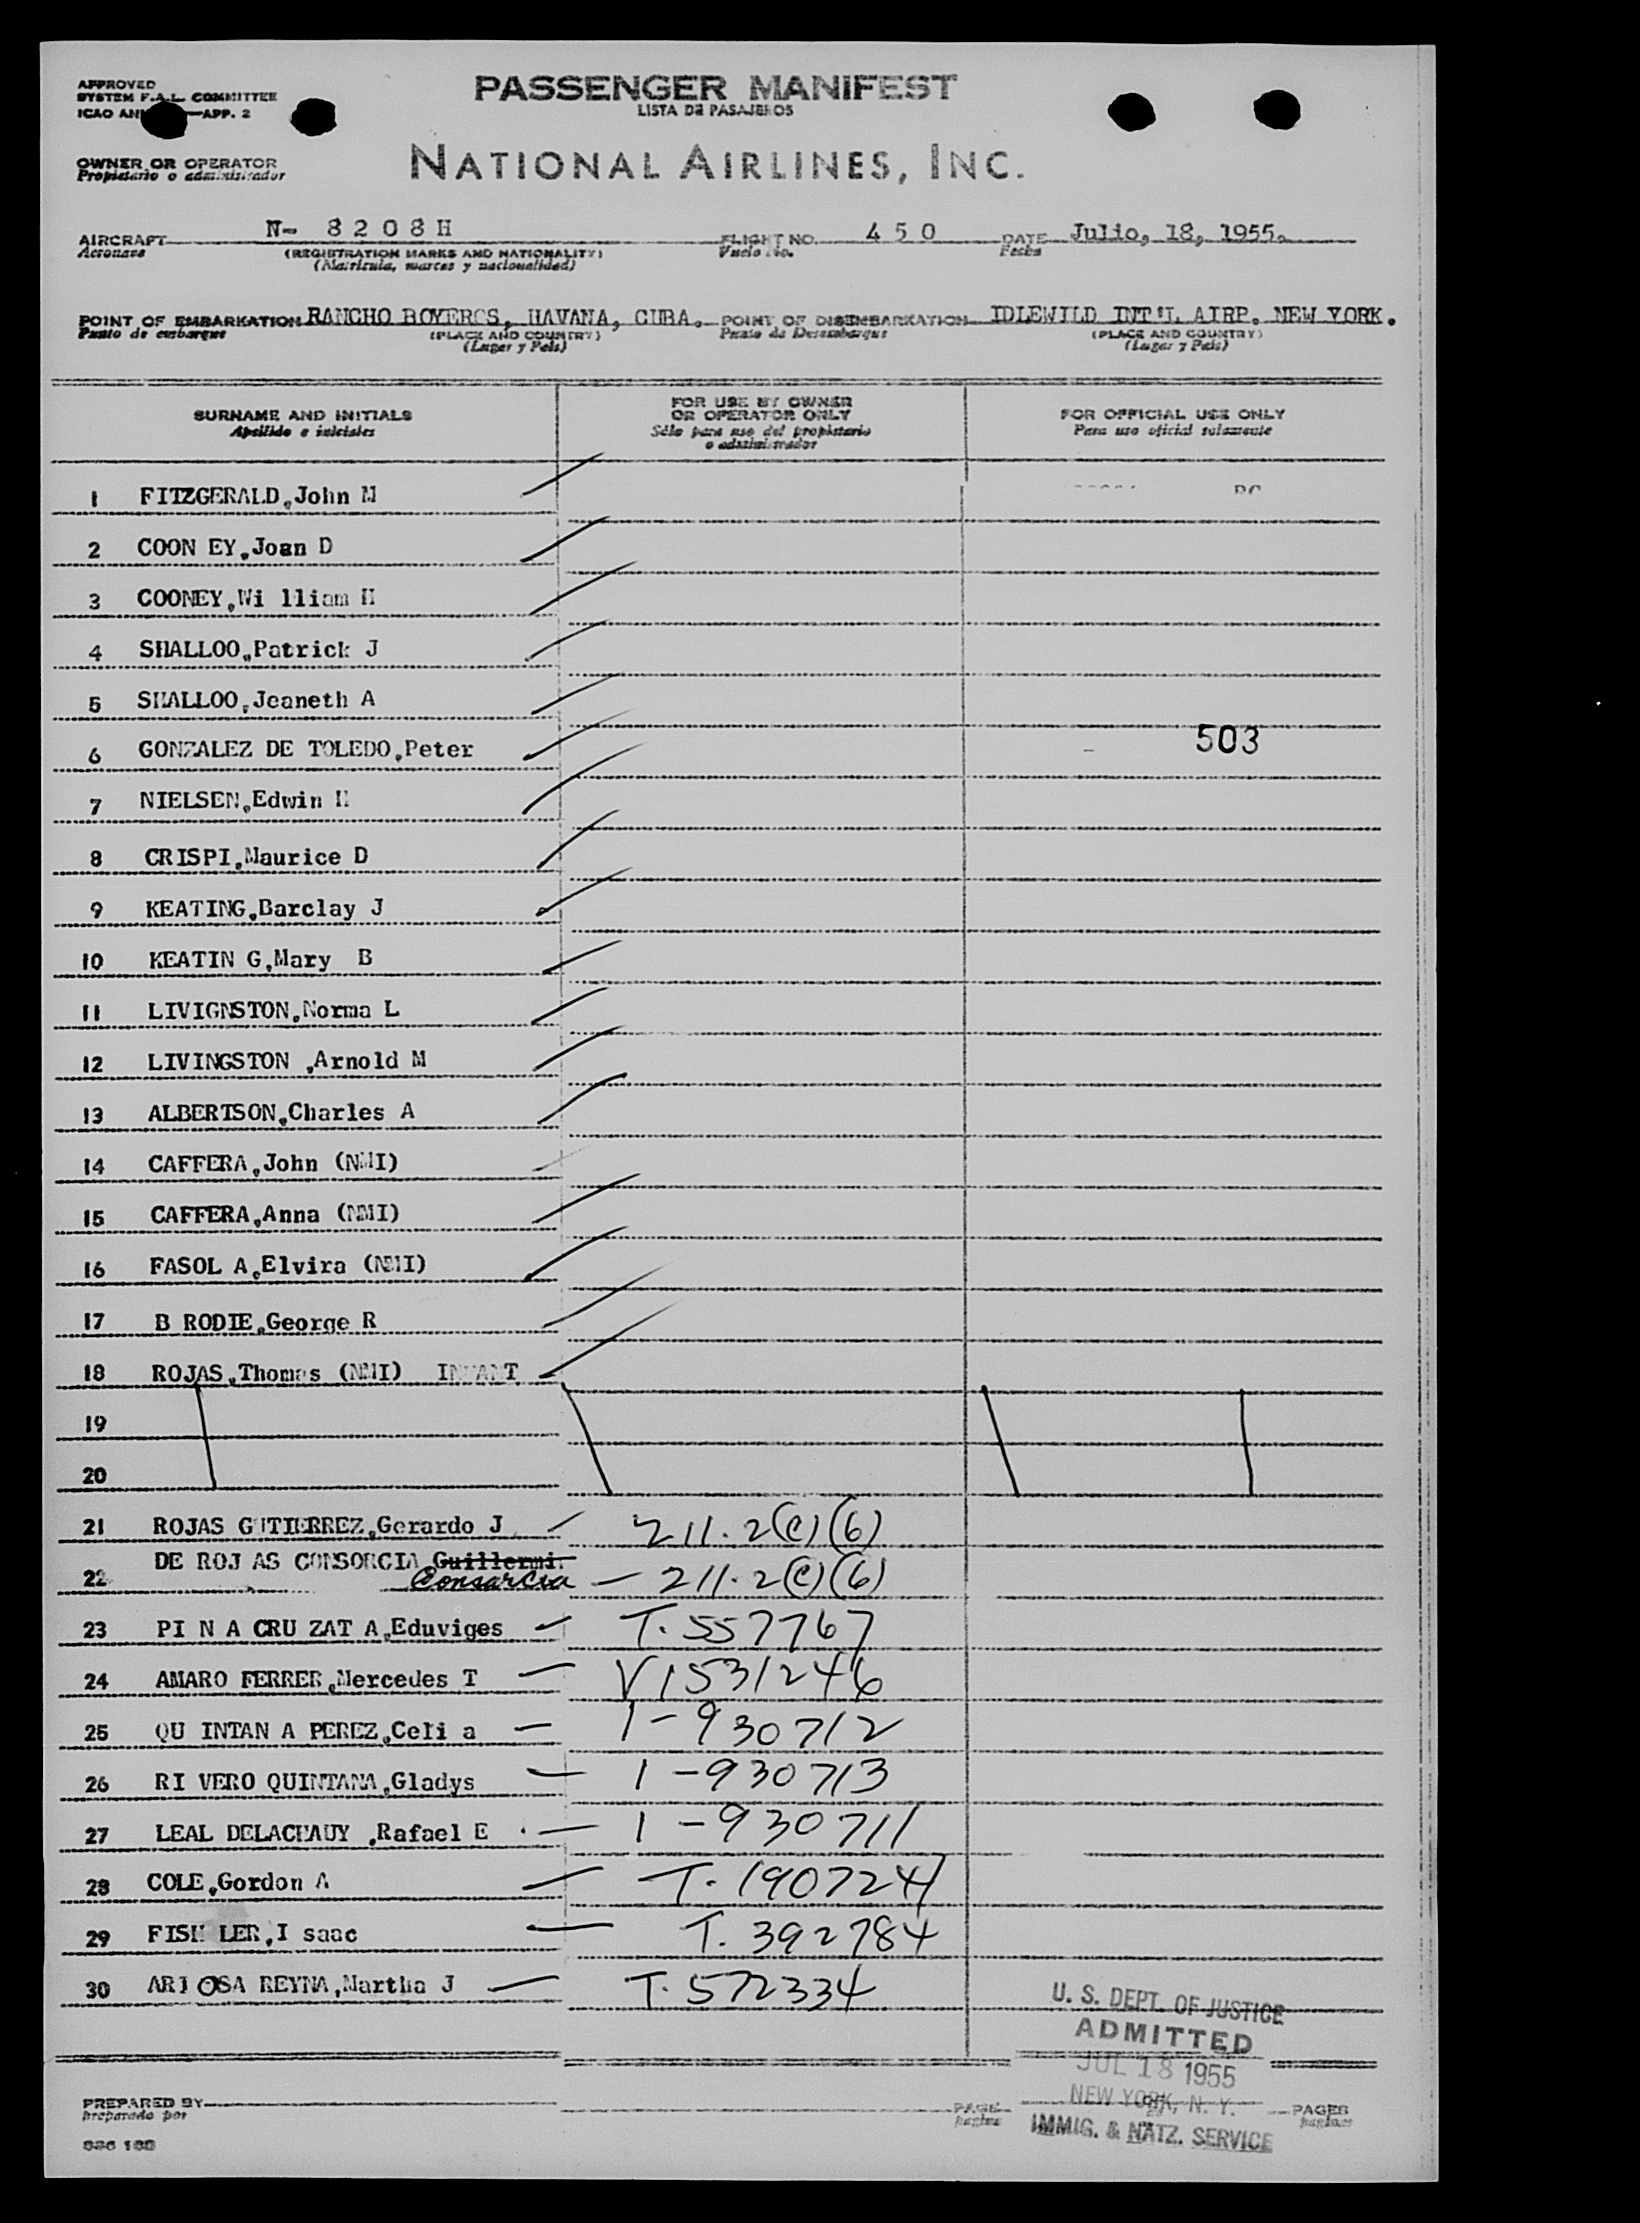 APPROVED
SYSTEM F.A.L. COMMITTEE
ICAO AN —APP. 2
PASSENGER MANIFEST
LISTA DE PASAJEROS
OWNER OR OPERATOR
Propietario o administrador
NATIONAL AIRLINES, INC.
AIRCRAFT N- 8208H FLIGHT NO. 450 DATE Julio, 18, 1955.
Aeronave (REGISTRATION MARKS AND NATIONALITY) Vuelo No. Fecha
(Matricula, marcas y nacionalidad)
POINT OF EMBARKATION RANCHO BOYEROS, HAVANA, CUBA. POINT OF DISEMBARKATION IDLEWILD INT'L AIRP. NEW YORK.
Punto de embarque (PLACE AND COUNTRY) Punto de Desembarque (PLACE AND COUNTRY)
(Lugar y Pais) (Lugar y Pais)
SURNAME AND INITIALS FOR USE BY OWNER OR OPERATOR ONLY FOR OFFICIAL USE ONLY
Apellido e iniciales Sólo para uso del propietario o administrador Para uso oficial solamente
1 FITZGERALD,John M
2 COON EY,Joan D
3 COONEY,Wi lliam H
4 SHALLOO,Patrick J
5 SHALLOO,Jeaneth A
6 GONZALEZ DE TOLEDO,Peter 503
7 NIELSEN,Edwin H
8 CRISPI,Maurice D
9 KEATING,Barclay J
10 KEATIN G,Mary B
11 LIVIGNSTON,Norma L
12 LIVINGSTON ,Arnold M
13 ALBERTSON,Charles A
14 CAFFERA,John (NMI)
15 CAFFERA,Anna (NMI)
16 FASOL A,Elvira (NMI)
17 B RODIE,George R
18 ROJAS,Thomas (NMI) INFANT
19
20
21 ROJAS GUTIERREZ,Gerardo J 211.2(C)(6)
22 DE ROJ AS CONSORCIA,Guillermi
Consarcia 211.2(C)(6)
23 PI N A CRU ZAT A,Eduviges T. 557767
24 AMARO FERRER,Mercedes T V1531246
25 QU INTAN A PEREZ,Celi a 1-930712
26 RI VERO QUINTANA,Gladys 1-930713
27 LEAL DELACHAUY ,Rafael E 1-930711
28 COLE,Gordon A T. 1907247
29 FISH LER,I saac T. 392784
30 ARJ OSA REYNA,Martha J T. 572334
U. S. DEPT. OF JUSTICE
ADMITTED
JUL 18 1955
NEW YORK, N. Y.
IMMIG. & NATZ. SERVICE
PREPARED BY PAGE PAGES
preparado por pagina paginas